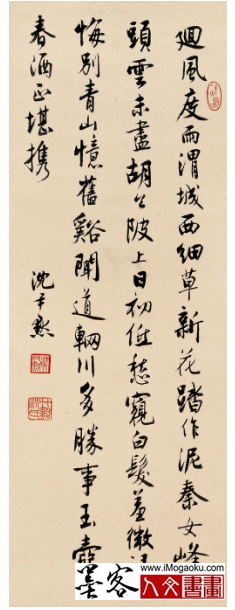 廻風度雨渭城西細草新花踏作泥秦女峰
頭雪未盡胡公陂上日初低愁窺白髮羞微祿
悔別青山憶舊谿聞道輞川多勝事玉壺
春酒正堪携
沈尹默
www.iMogaoku.com
墨客人文書畫